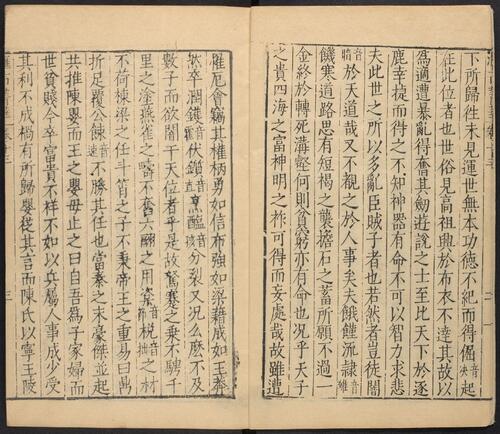 下所歸徃未見運世無本功德不紀而得倔音央起
在此位者也世俗見高祖興於布衣不達其故以
爲適遭暴亂得奮其劒遊說之士至比天下於逐
鹿幸捷而得之不知神器有命不可以智力求悲
夫此世之所以多亂臣賊子者也若然者豈徒闇
音暗於天道哉又不覩之於人事矣夫餓饉流隸音
饑寒道路思有短褐之襲擔石之蓄所願不過一
金終於轉死溝壑何則貧窮亦有命也况乎天子
之貴四海之富神明之祚可得而妄處哉故雖遭
罹厄會竊其權柄勇如信布強如梁藉成如王莽
然卒潤鑊音伏鑕音烹醢音分裂又况么麽不及
數子而欲闇干天位者乎是故駑蹇之乗不騁千
里之塗燕雀之疇不奮六翮之用楶音節梲音拙之材
不荷棟梁之任斗筲之子不秉帝王之重易曰鼎
折足覆公餗音速不勝其任也當秦之末豪傑並起
共推陳嬰而王之嬰母止之曰自吾爲子家婦而
世貧賤今卒富貴不祥不如以兵屬人事成少受
其利不成禍有所歸嬰從其言而陳氏以寧王陵